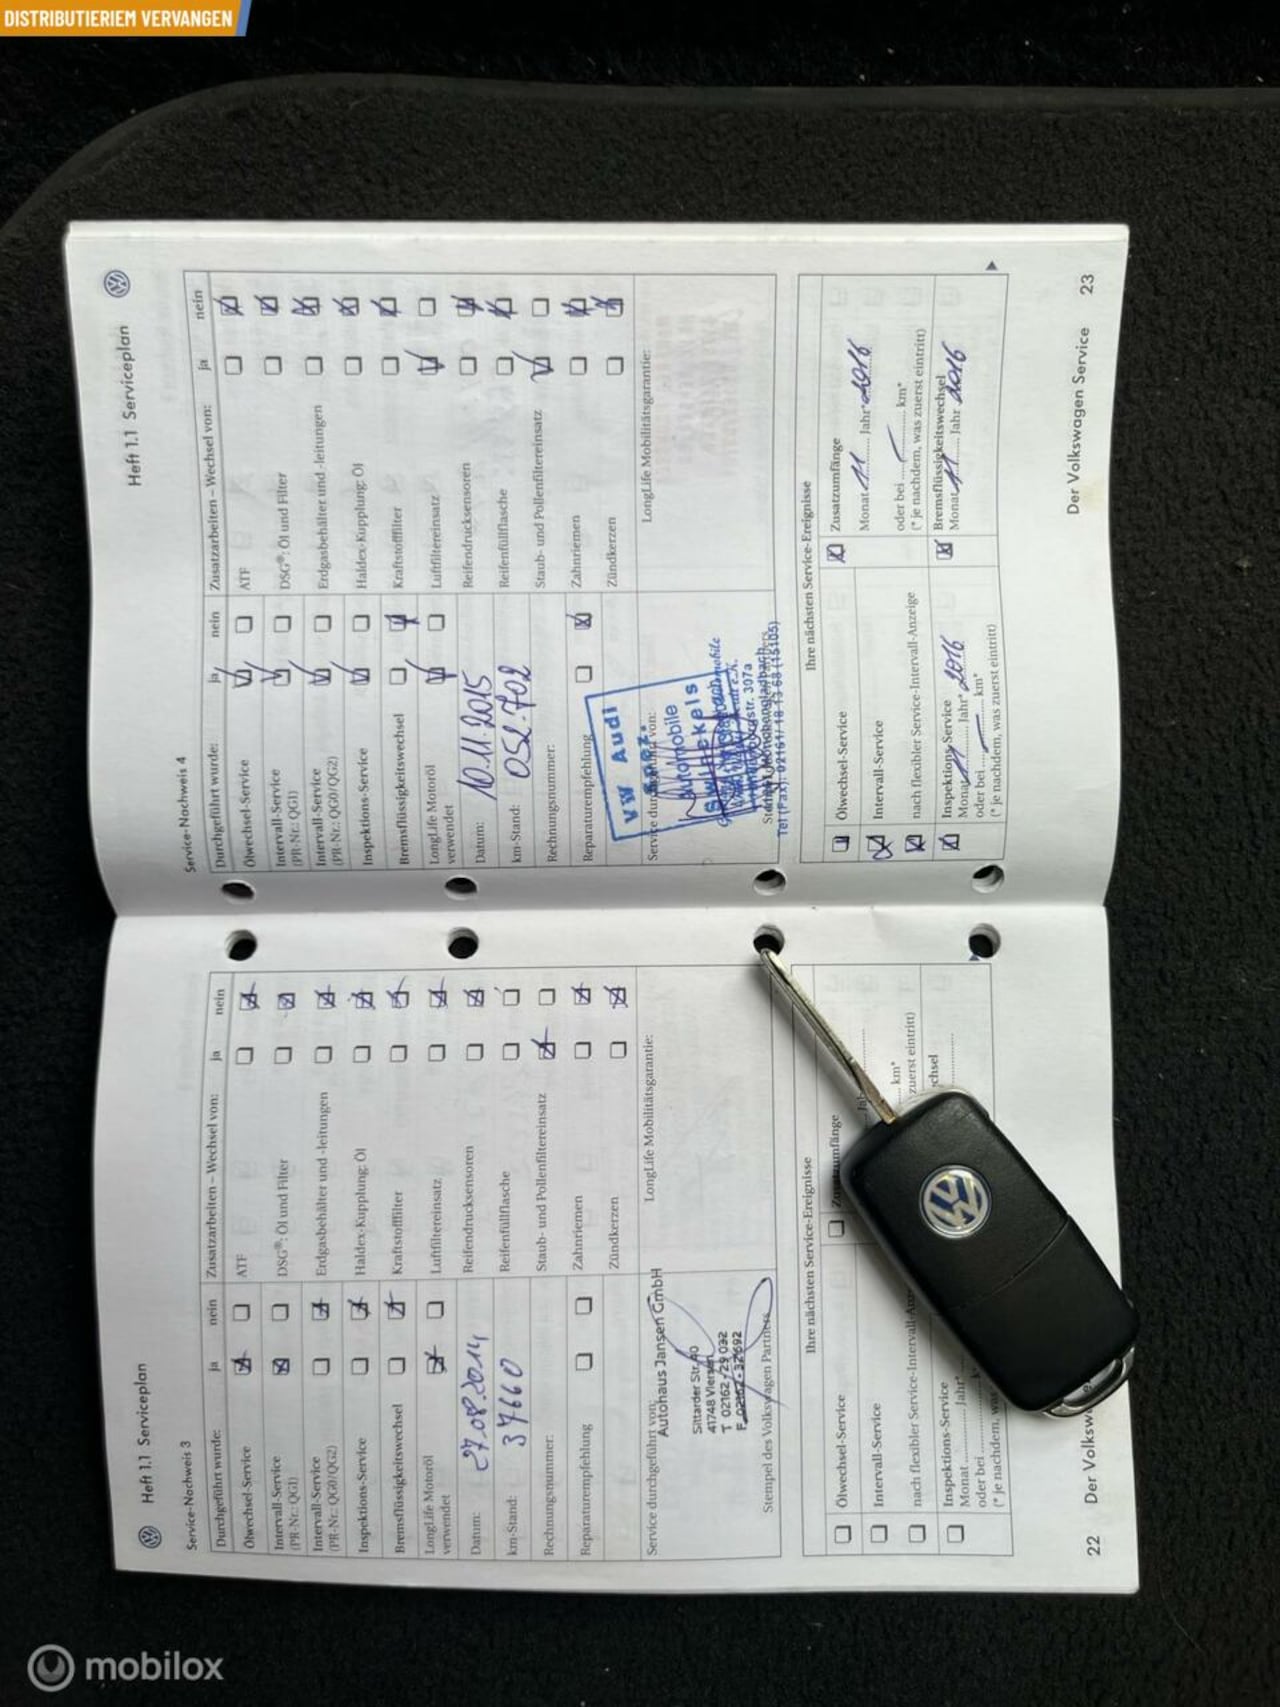 DISTRIBUTIERIEM VERVANGEN
Heft 1.1 Serviceplan
Service-Nachweis 3
Durchgeführt wurde:
ja
nein
Ölwechsel-Service
Intervall-Service
(PR-Nr.: QG1)
Intervall-Service
(PR-Nr.: QG0/QG2)
Inspektions-Service
Bremsflüssigkeitswechsel
LongLife Motoröl
verwendet
Datum: 27.08.2014
km-Stand: 37660
Rechnungsnummer:
Reparaturempfehlung
Zusatzarbeiten – Wechsel von:
ja
nein
ATF
DSG®: Öl und Filter
Erdgasbehälter und -leitungen
Haldex-Kupplung: Öl
Kraftstofffilter
Luftfiltereinsatz
Reifendrucksensoren
Reifenfüllflasche
Staub- und Pollenfiltereinsatz
Zahnriemen
Zündkerzen
Service durchgeführt von:
Autohaus Jansen GmbH
Sittarder Str. 40
41748 Viersen
T 02162 / 29 032
F 02162 - 321692
Stempel des Volkswagen Partners
LongLife Mobilitätsgarantie:
Ihre nächsten Service-Ereignisse
Ölwechsel-Service
Intervall-Service
nach flexibler Service-Intervall-Anz
Inspektions-Service
Monat Jahr*
oder bei
(* je nachdem, was
Zusatzumfänge
km*
zuerst eintritt)
chsel
22
Der Volksw
Heft 1.1 Serviceplan
Service-Nachweis 4
Durchgeführt wurde:
ja
nein
Ölwechsel-Service
Intervall-Service
(PR-Nr.: QG1)
Intervall-Service
(PR-Nr.: QG0/QG2)
Inspektions-Service
Bremsflüssigkeitswechsel
LongLife Motoröl
verwendet
Datum: 10.11.2015
km-Stand: 052.702
Rechnungsnummer:
Reparaturempfehlung
Zusatzarbeiten – Wechsel von:
ja
nein
ATF
DSG®: Öl und Filter
Erdgasbehälter und -leitungen
Haldex-Kupplung: Öl
Kraftstofffilter
Luftfiltereinsatz
Reifendrucksensoren
Reifenfüllflasche
Staub- und Pollenfiltereinsatz
Zahnriemen
Zündkerzen
Service durchgeführt von:
VW Audi
Spez.
Automobile
Swinckels
307a
LongLife Mobilitätsgarantie:
Ihre nächsten Service-Ereignisse
Ölwechsel-Service
Intervall-Service
nach flexibler Service-Intervall-Anzeige
Inspektions-Service
Monat 11 Jahr* 2016
oder bei km*
(* je nachdem, was zuerst eintritt)
Zusatzumfänge
Monat 11 Jahr* 2016
oder bei km*
(* je nachdem, was zuerst eintritt)
Bremsflüssigkeitswechsel
Monat 11 Jahr 2016
Der Volkswagen Service
23
mobilox